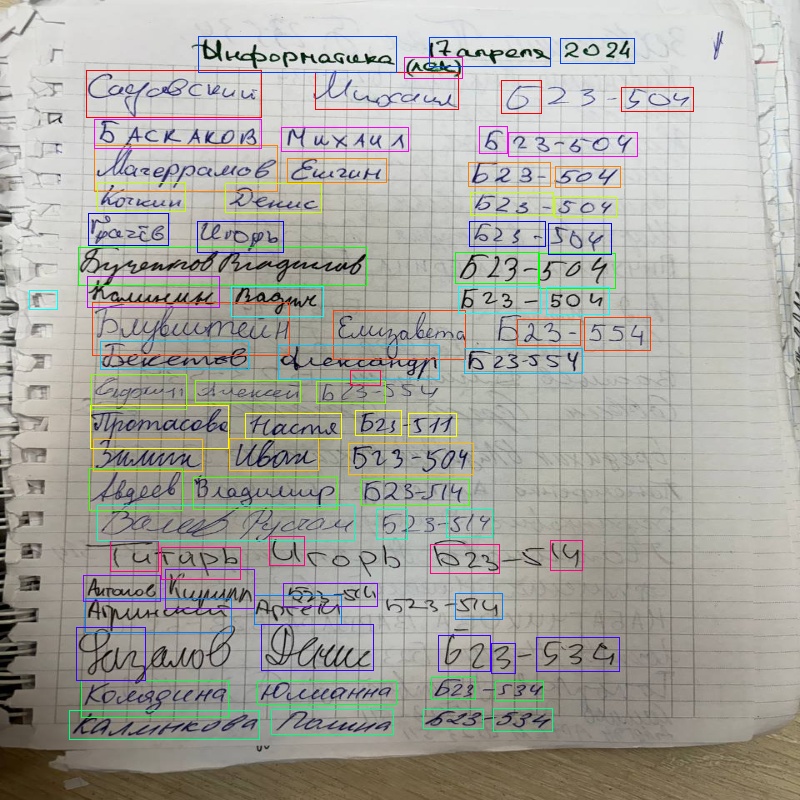 Информатика 17 апреля 2024
(лек)
Садовский Михаил Б23-504
Баскаков Михаил Б23-504
Магеррамов Емгин Б23-504
Кочкин Денис Б23-504
Грачёв Игорь Б23-504
Владислав Б23-504
Калинин Вадим Б23-504
Блувштейн Елизавета Б23-554
Бекетов Александр Б23-554
Алексей Б23-554
Протасова Настя Б23-511
Зимин Иван Б23-504
Авдеев Владимир Б23-514
Валеев Рустам Б23-514
Титарь Игорь Б23-514
Антонов Кирилл Б23-514
Агринский Артём Б23-514
Денис Б23-534
Колядина Юлианна Б23-534
Калинкова Полина Б23-534